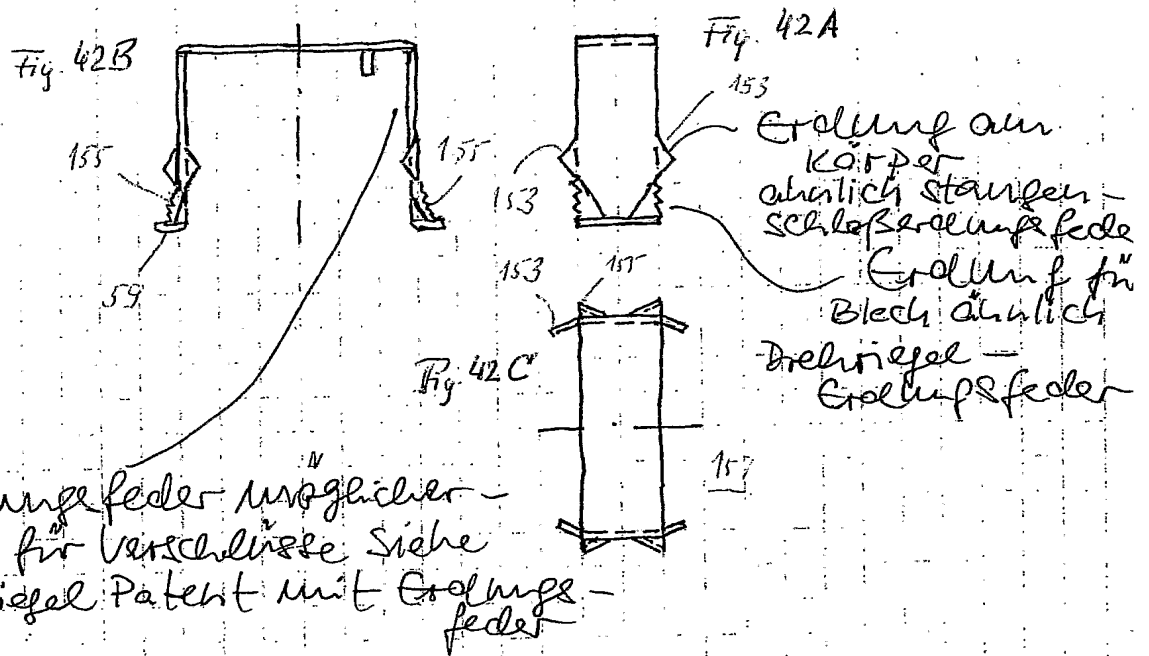 Fig. 42B
Fig. 42A
153
155
155
153
59
Erdung am
Körper
ähnlich Stangen-
schloßerdungsfede
Erdung fü
Blech ähnlich
Drehriegel-
Erdungsfeder
153
155
Fig. 42C
157
ungsfeder möglicher-
für Verschlüsse siehe
iegel Patent mit Erdungs-
feder